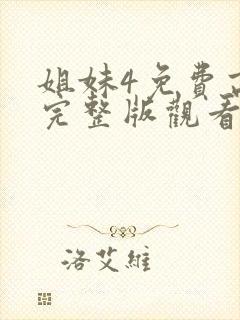 姐妹4免費
完整版觀看
洛艾維